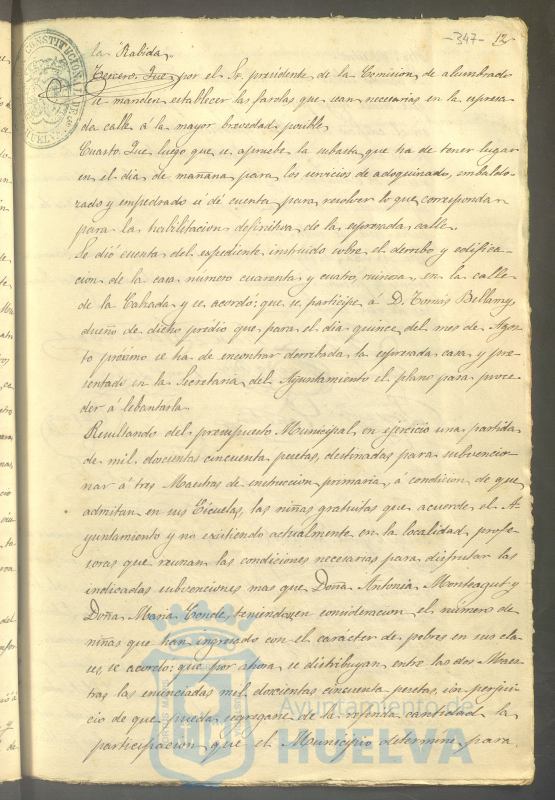 -347- 12
la Rabida.
Tercero. Que, por el Sr. presidente de la Comision de alumbrado
se manden establecer las farolas que sean necesarias en la espresa-
da calle á la mayor brevedad posible.
Cuarto. Que luego que se apruebe la subasta que ha de tener lugar
en el dia de mañana para los servicios de adoquinado, embaldo-
zado y empedrado se dé cuenta para resolver lo que corresponda
para la habilitacion definitiva de la espresada calle.
Se dió cuenta del espediente instruido sobre el derribo y edifica-
cion de la casa número cuarenta y cuatro, ruinosa, en la calle
de la Calzada y se acordo: que se participe á D. Tomás Bellamy,
dueño de dicho predio que para el dia quince del mes de Agos-
to próximo se ha de encontrar derribada la espresada casa y pre-
sentado en la Secretaria del Ayuntamiento el plano para proce-
der á lebantarla.
Resultando del presupuesto Municipal en ejercicio una partida
de mil doscientas cincuenta pesetas, destinadas para subvencio-
nar á tres Maestras de instruccion primaria, á condicion de que
admitan en sus Escuelas, las niñas gratuitas que acuerde el A-
yuntamiento y no existiendo actualmente en la localidad profe-
soras que reunan las condiciones necesarias para disfrutar las
indicadas subvenciones mas que Doña Antonia Monteagut y
Doña Maria Conde, teniendo en consideracion el número de
niñas que han ingresado con el caracter de pobres en sus cla-
ses, se acordo: que por ahora se distribuyan entre las dos Maes-
tras las enunciadas mil doscientas cincuenta pesetas, sin perjui-
cio de que pueda segregarse de la referida cantidad la
participacion que el Municipio determine para
Ayuntamiento de
HUELVA